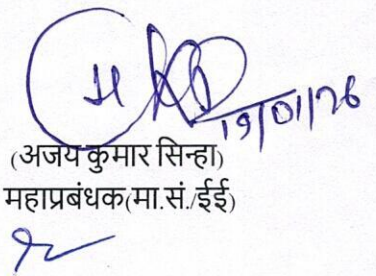 19/01/26
(अजय कुमार सिन्हा)
महाप्रबंधक(मा.सं./ईई)